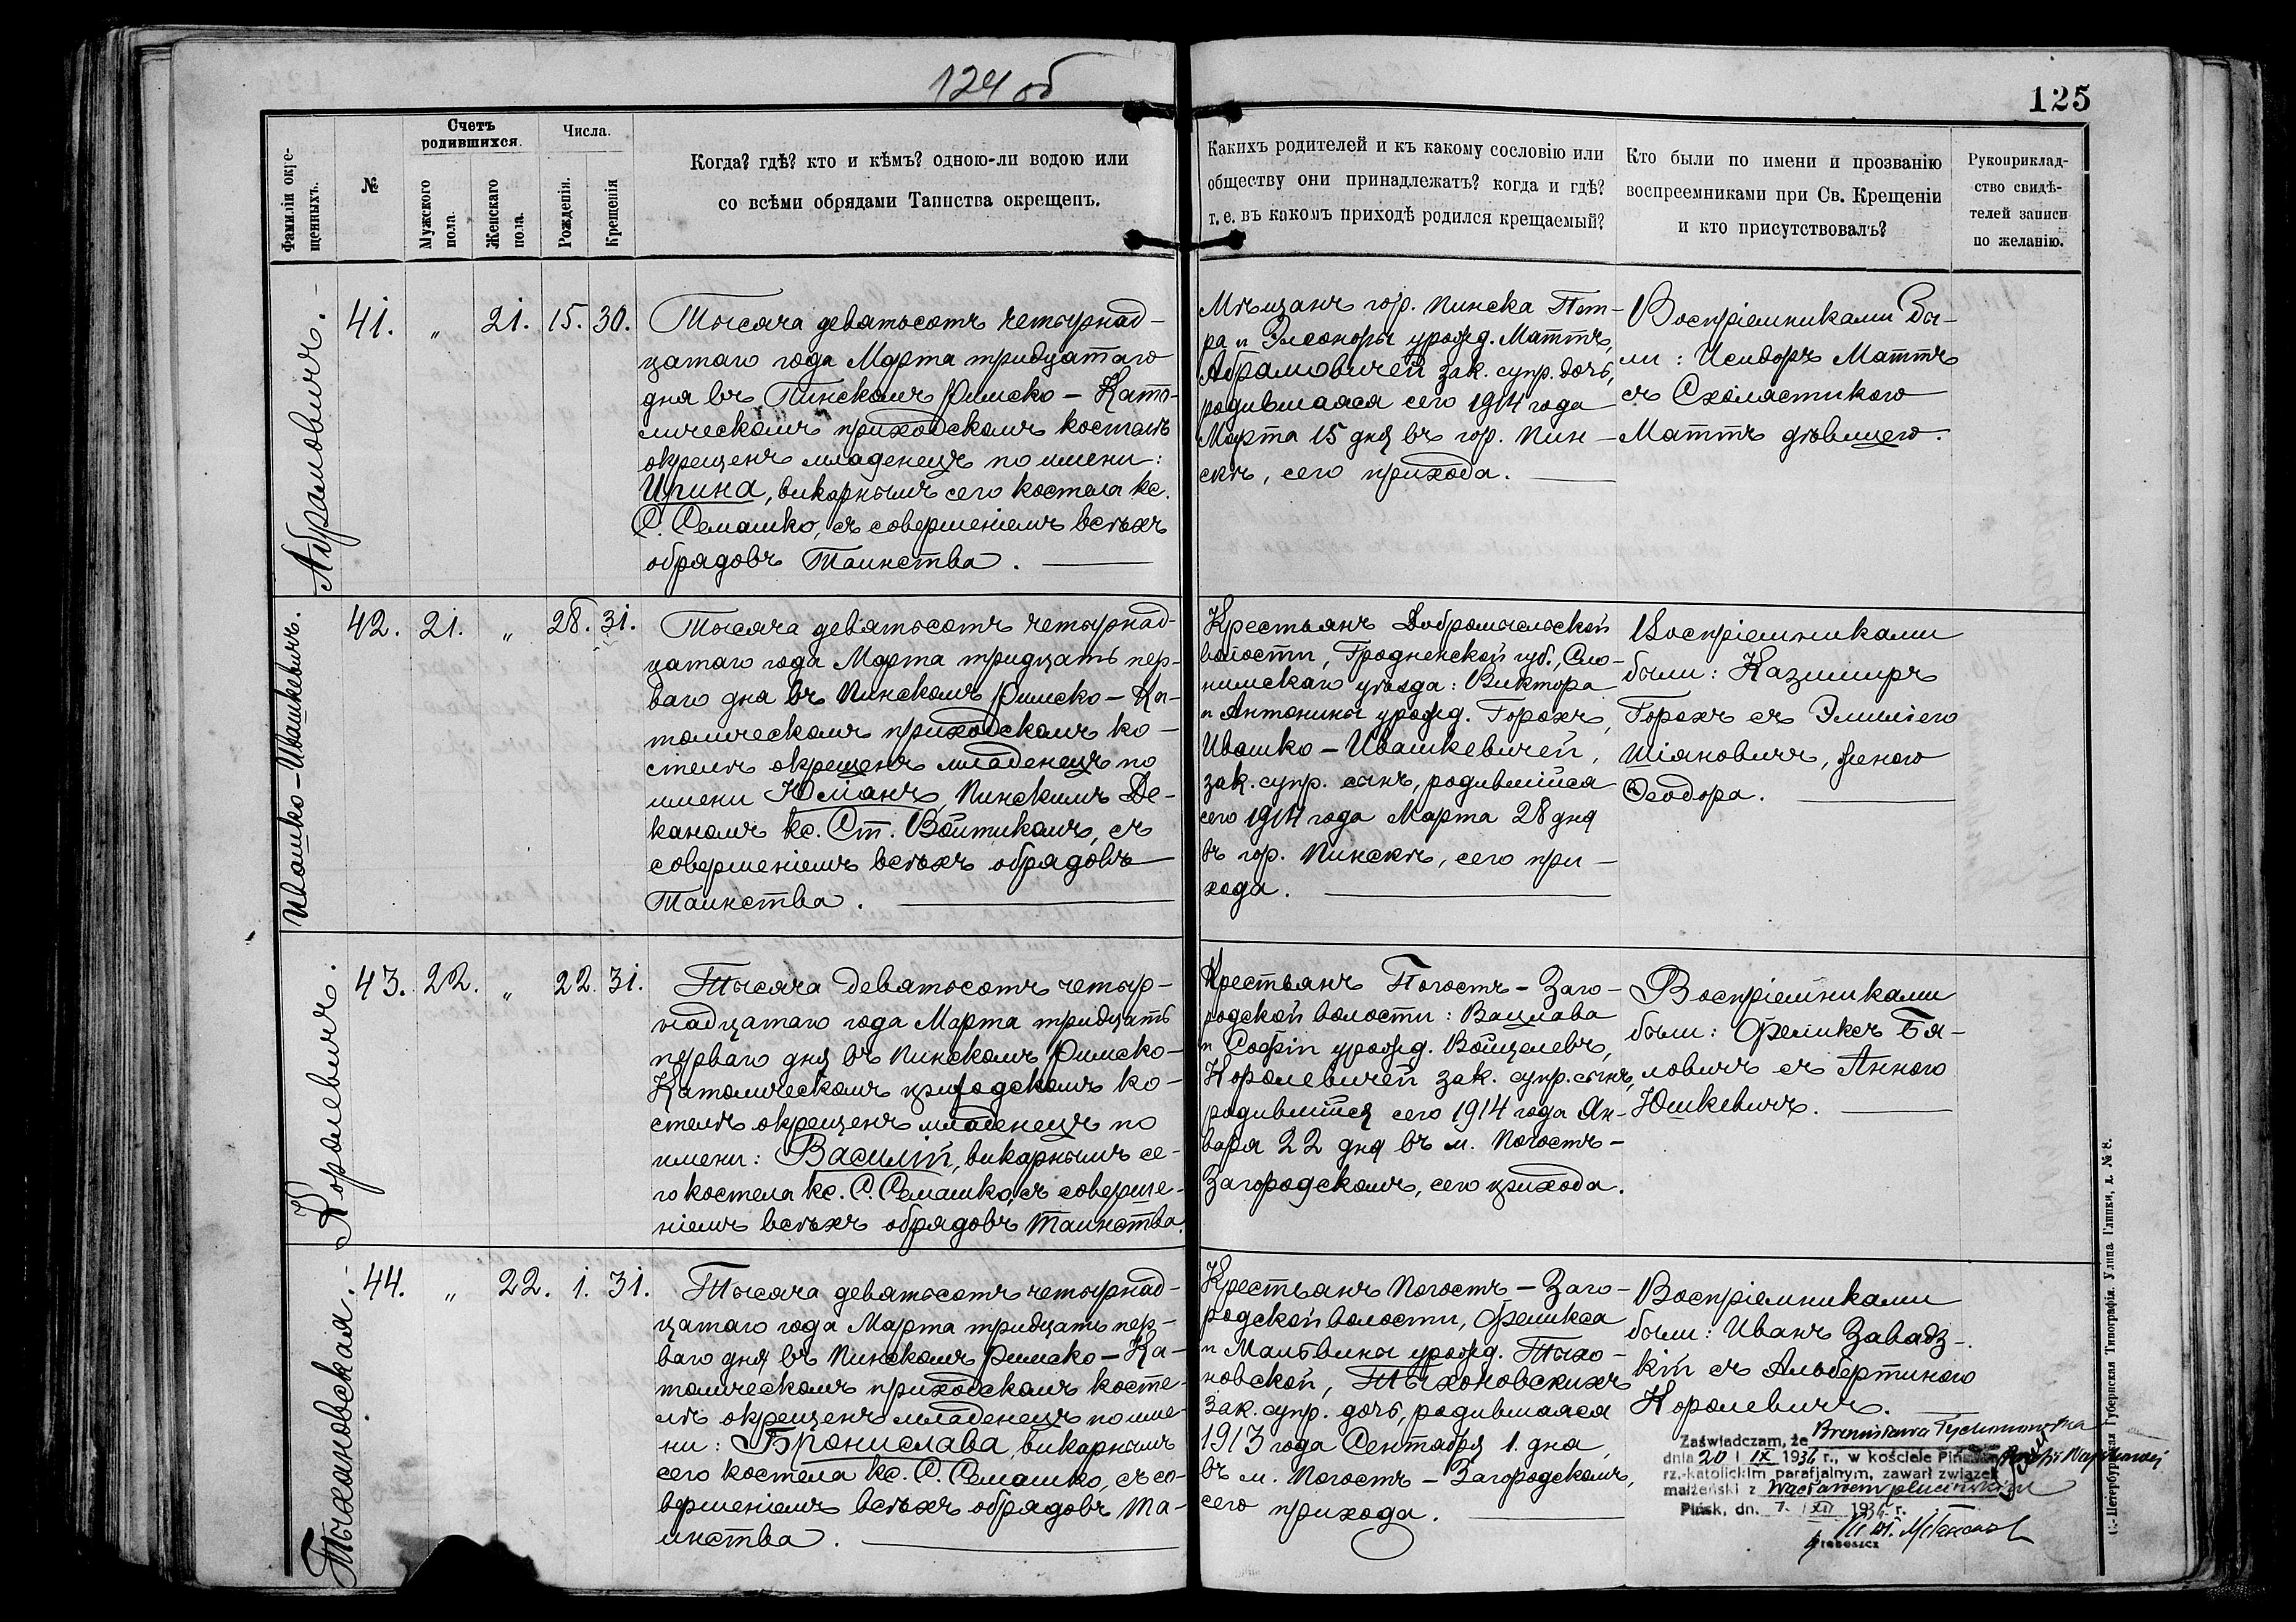 124 об
125
Фамиліи окре-
щенныхъ.
№
Счетъ
родившихся.
Мужского
пола.
Женскаго
пола.
Числа.
Рожденія.
Крещенія
Когда? гдѣ? кто и кѣмъ? одною-ли водою или
со всѣми обрядами Таинства окрещенъ.
Какихъ родителей и къ какому сословію или
обществу они принадлежатъ? когда и гдѣ?
т. е. въ какомъ приходѣ родился крещаемый?
Кто были по имени и прозванію
воспреемниками при Св. Крещеніи
и кто присутствовалъ?
Рукоприклад-
ство свидѣ-
телей записи
по желанію.
Абрамовичъ.
41. „ 21. 15. 30.
Тысяча девятьсотъ четырнад-
цатаго года Марта тридцатаго
дня въ Пинскомъ Римско-Като-
лическомъ приходскомъ костелѣ
окрещенъ младенецъ по имени:
Ирина, викарнымъ сего костела кс.
С. Семашко, съ совершеніемъ всѣхъ
обрядовъ Таинства.
Мѣщанъ гор. Пинска Пет-
ра и Элеоноры урожд. Маттъ,
Абрамовичей зак. супр. дочь,
родившаяся сего 1914 года
Марта 15 дня въ гор. Пин-
скѣ, сего прихода.
Воспріемниками бы-
ли: Исидоръ Маттъ
съ Схолястикою
Маттъ дѣвицею.
Ивашко-Ивашкевичъ.
42. 21. „ 28. 31.
Тысяча девятьсотъ четырнад-
цатаго года Марта тридцать пер-
ваго дня въ Пинскомъ Римско-Ка-
толическомъ приходскомъ ко-
стелѣ окрещенъ младенецъ по
имени Юліанъ, Пинскимъ Де-
каномъ кс. Ст. Войтикомъ, съ
совершеніемъ всѣхъ обрядовъ
Таинства.
Крестьянъ Добромысльской
волости, Гродненской губ., Сло-
нимскаго уѣзда: Виктора
и Антонины урожд. Горохъ,
Ивашко-Ивашкевичей,
зак. супр. сынъ, родившійся
сего 1914 года Марта 28 дня
въ гор. Пинскѣ, сего при-
хода.
Воспріемниками
были: Казимиръ
Горохъ съ Эмиліею
Шіяновичъ, женою
Ѳеодора.
Королевичъ.
43. 22. „ 22. 31.
Тысяча девятьсотъ четыр-
надцатаго года Марта тридцать
перваго дня въ Пинскомъ Римско-
Католическомъ приходскомъ ко-
стелѣ окрещенъ младенецъ по
имени: Василій, викарнымъ се-
го костела кс. С. Семашко, съ соверше-
ніемъ всѣхъ обрядовъ Таинства.
Крестьянъ Погостъ-Заго-
родской волости: Вацлава
и Софіи урожд. Войцелевъ,
Королевичей зак. супр. сынъ,
родившійся сего 1914 года Ян-
варя 22 дня въ м. Погостъ-
Загородскомъ, сего прихода.
Воспріемниками
были: Феликсъ Бя-
ловичъ съ Анною
Юшкевичъ.
Тыхоновская.
44. „ 22. 1. 31.
Тысяча девятьсотъ четырнад-
цатаго года Марта тридцать пер-
ваго дня въ Пинскомъ Римско-Ка-
толическомъ приходскомъ косте-
лѣ окрещенъ младенецъ по име-
ни: Бронислава, викарнымъ
сего костела кс. С. Семашко, съ со-
вершеніемъ всѣхъ обрядовъ Та-
инства.
Крестьянъ Погостъ-Заго-
родской волости, Феликса
и Мальвины урожд. Тыхо-
новской, Тыхоновскихъ
зак. супр. дочь, родившаяся
1913 года Сентября 1. дня,
въ м. Погостъ-Загородскомъ,
сего прихода.
Воспріемниками
были: Иванъ Завадз-
кій съ Альбертиною
Королевичъ.
Zaświadczam, że Bronisława Tychonowska
dnia 20 / IX 1936 r., w kościele Pińskim
rz.-katolickim parafjalnym, zawarł związek
małżeński z Wacławem
Pińsk, dn. 7. XII 1936 r.
Proboszcz
С.-Петербургская Губернская Типографія. Улица Глинки, д. № 8.